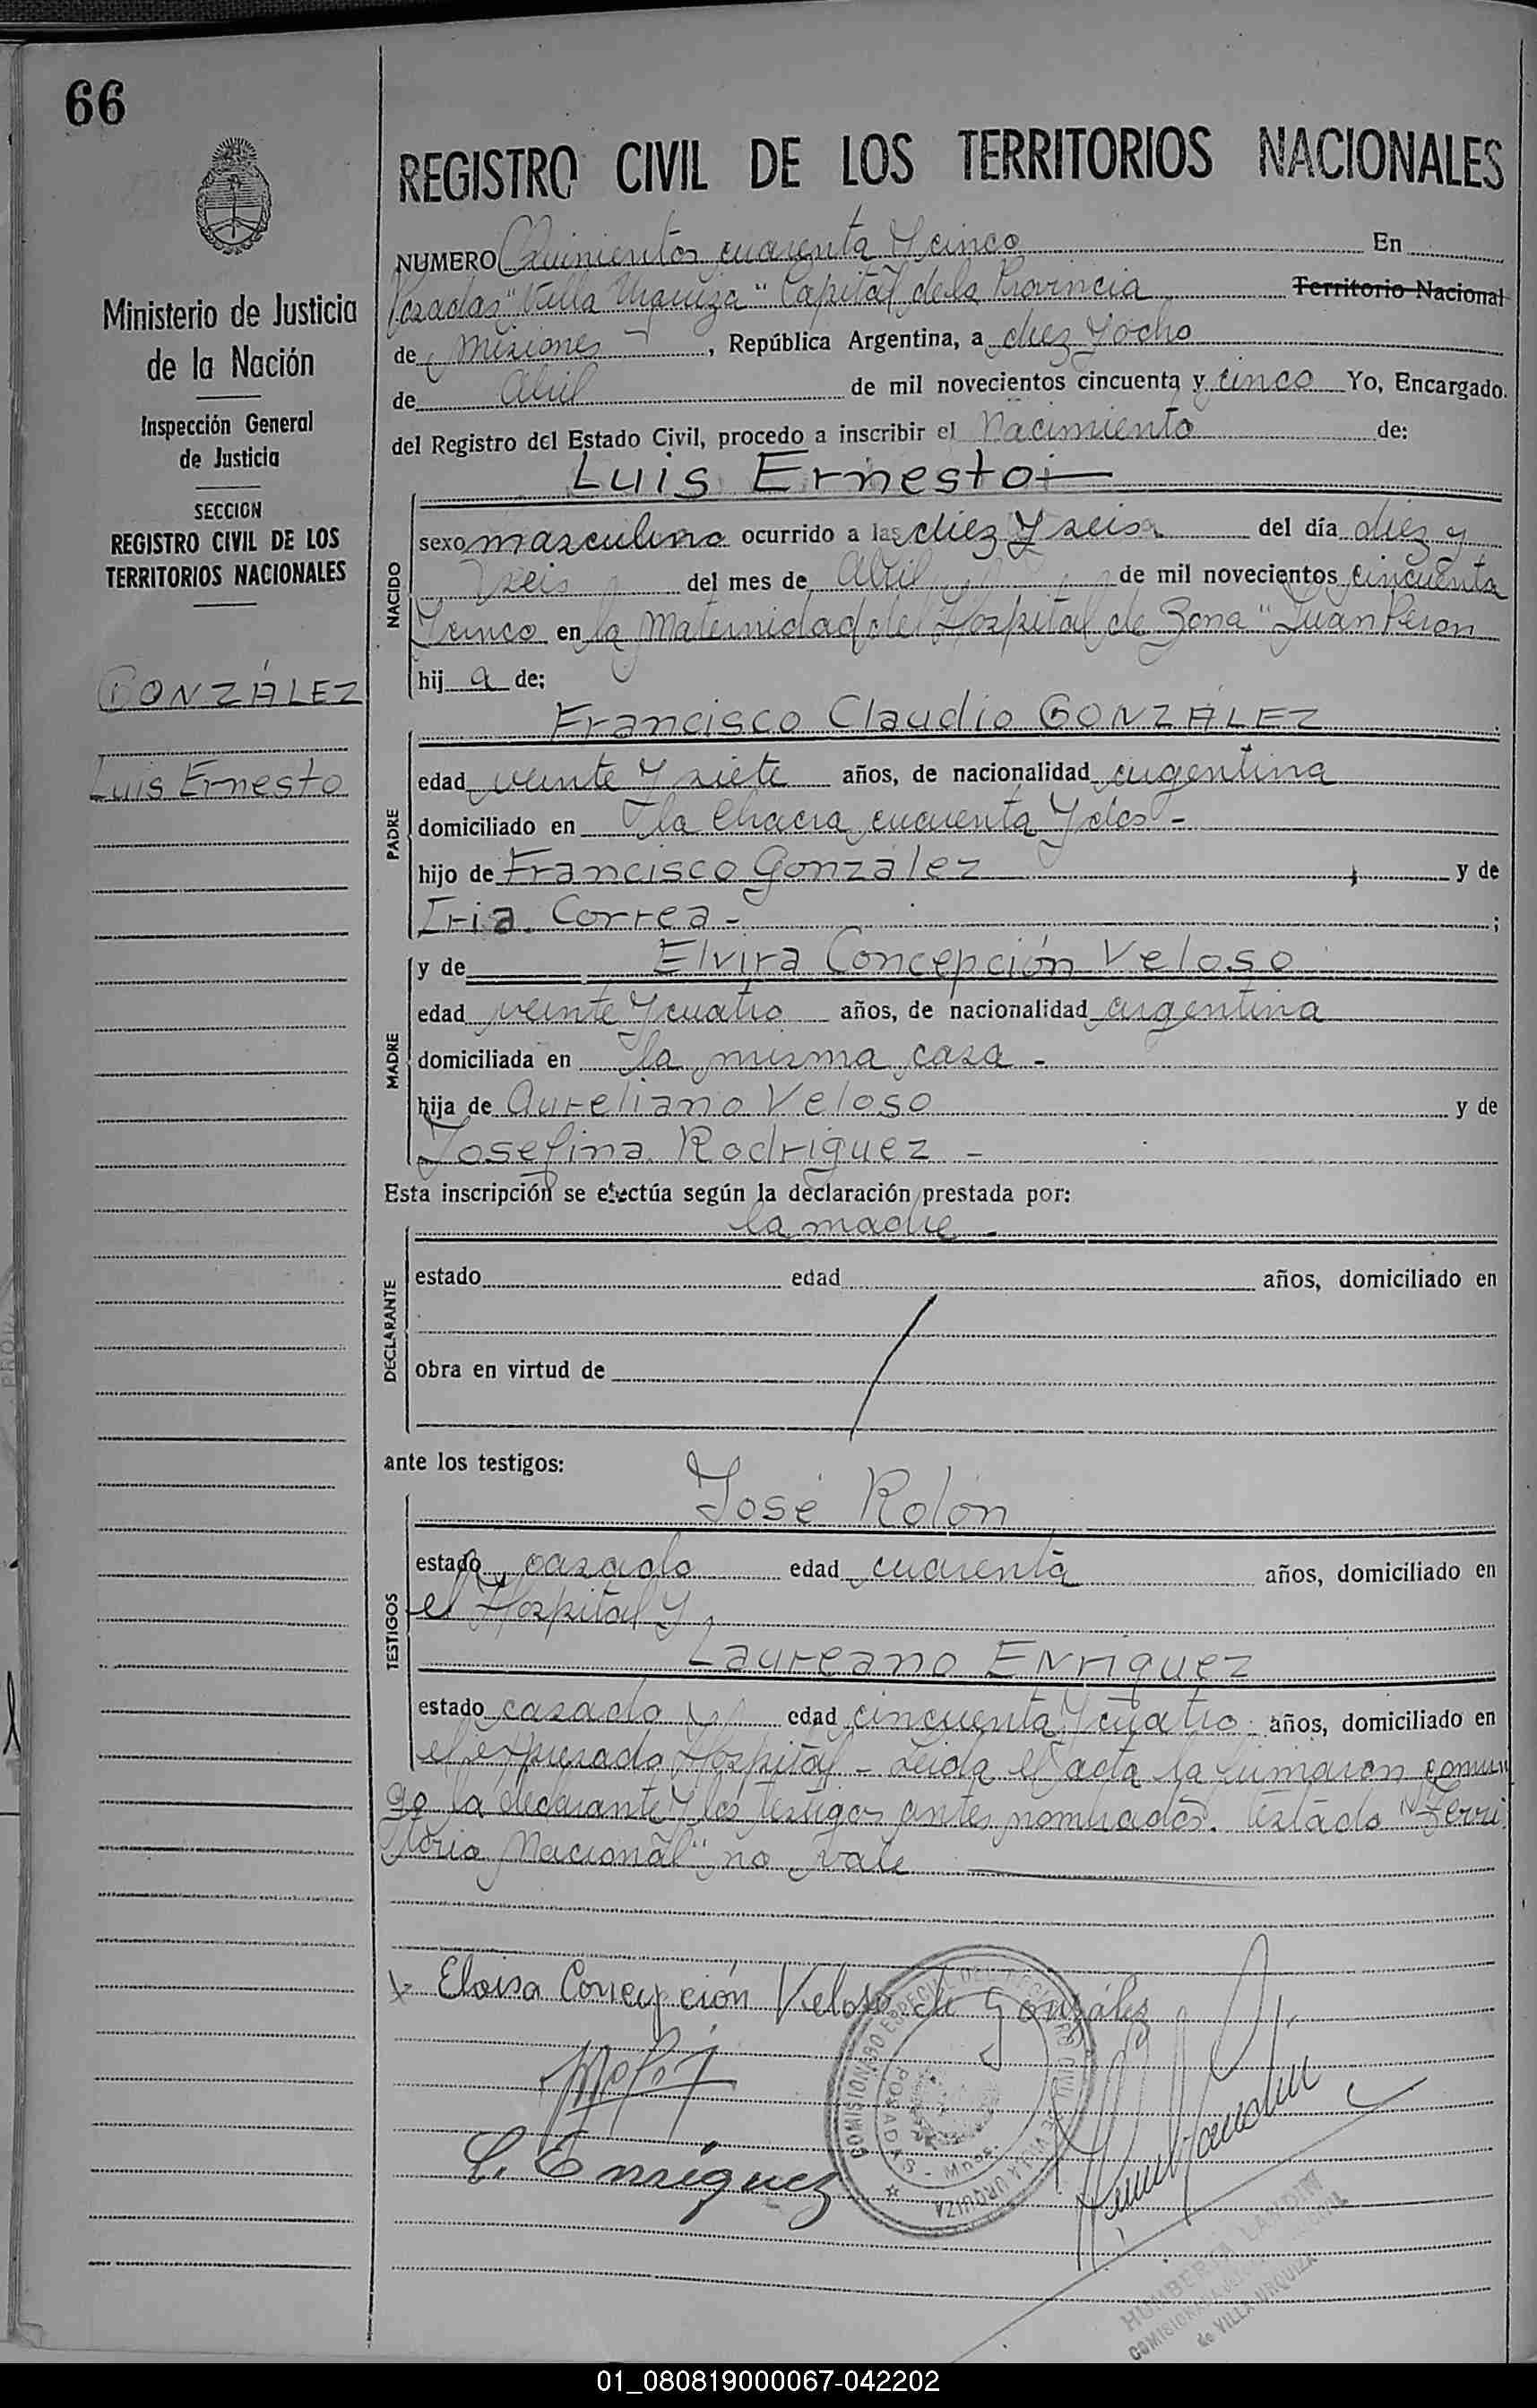 66
REGISTRO CIVIL DE LOS TERRITORIOS NACIONALES
Ministerio de Justicia
de la Nación
Inspección General
de Justicia
SECCION
REGISTRO CIVIL DE LOS
TERRITORIOS NACIONALES
GONZÁLEZ
Luis Ernesto
NUMERO Quinientos cuarenta y cinco En
Posadas "Villa Urquiza" Capital de la Provincia Territorio Nacional
de Misiones, República Argentina, a diez y ocho
de Abril de mil novecientos cincuenta y cinco Yo, Encargado
del Registro del Estado Civil, procedo a inscribir el Nacimiento de:
Luis Ernesto
NACIDO
sexo masculino ocurrido a las diez y seis del día diez y
seis del mes de Abril de mil novecientos cincuenta
y cinco en la Maternidad del Hospital de Zona "Juan Peron
hij a de:
Francisco Claudio GONZÁLEZ
PADRE
edad veinte y siete años, de nacionalidad argentina
domiciliado en la Chacra cuarenta y dos -
hijo de Francisco González y de
Iria Correa - ;
MADRE
y de Elvira Concepción Veloso
edad veinte y cuatro años, de nacionalidad argentina
domiciliada en la misma casa -
hija de Aureliano Veloso y de
Josefina Rodríguez -
Esta inscripción se efectúa según la declaración prestada por:
la madre -
DECLARANTE
estado edad años, domiciliado en
obra en virtud de
ante los testigos:
José Rolón
TESTIGOS
estado casado edad cuarenta años, domiciliado en
el Hospital y
Laureano Enríquez
estado casado y edad cincuenta y cuatro años, domiciliado en
el expresado Hospital - Leida el acta la firmaron conmi
go la declarante y los testigos antes nombrados. Testado "Terri
torio Nacional" no vale
Eloisa Concepción Veloso de González
L. Enríquez
COMISIONADO ESPECIAL DEL REGISTRO CIVIL DE VILLA URQUIZA
POSADAS - Mnes.
HUMBERTO LANDIN
de VILLA URQUIZA
01_080819000067-042202